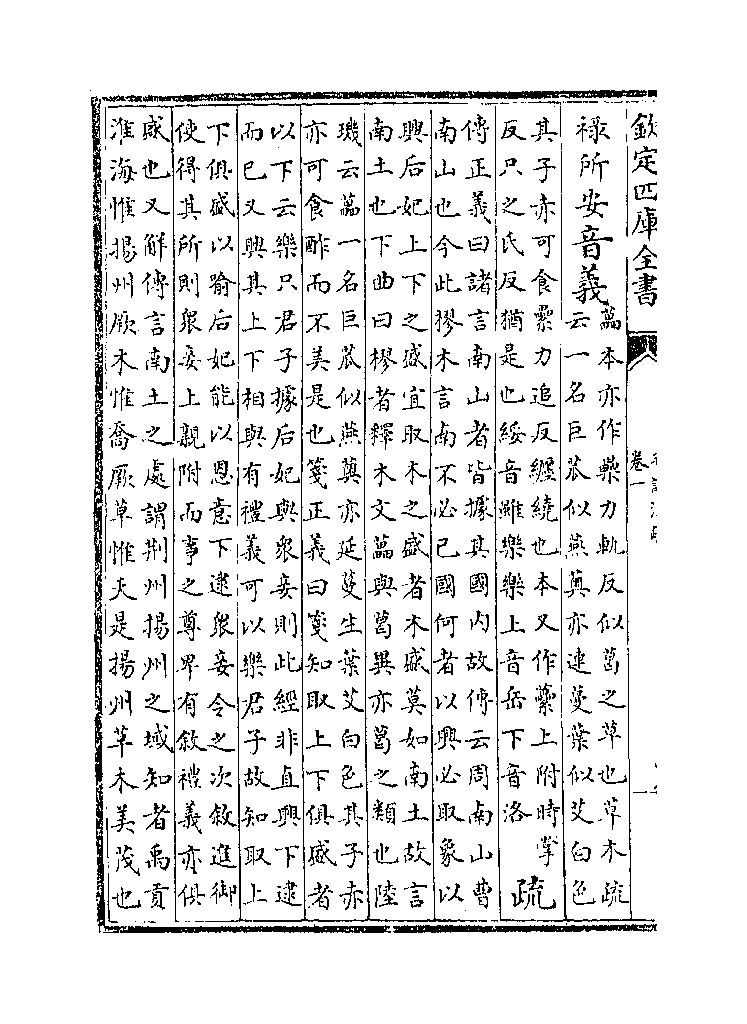 欽定四庫全書
卷一
祿所安音義
藟本亦作虆力軌反似葛之草也草木疏
云一名巨苽似燕薁亦連蔓葉似艾白色
其子赤可食纍力追反纏繞也本又作虆上附時掌
反只之氏反猶是也綏音雖樂樂上音岳下音洛
疏
傳正義曰諸言南山者皆據其國内故傳云周南山曹
南山也今此樛木言南不必已國何者以興必取象以
興后妃上下之盛宜取木之盛者木盛莫如南土故言
南土也下曲曰樛者釋木文藟與葛異亦葛之類也陸
璣云藟一名巨苽似燕薁亦延蔓生葉艾白色其子赤
亦可食酢而不美是也箋正義曰箋知取上下俱盛者
以下云樂只君子據后妃與衆妾則此經非直興下逮
而已又興其上下相與有禮義可以樂君子故知取上
下俱盛以喻后妃能以恩意下逮衆妾令之次敘進御
使得其所則衆妾上親附而事之尊卑有敘禮義亦俱
盛也又解傳言南土之處謂荆州揚州之域知者禹貢
淮海惟揚州厥木惟喬厥草惟夭是揚州草木美茂也